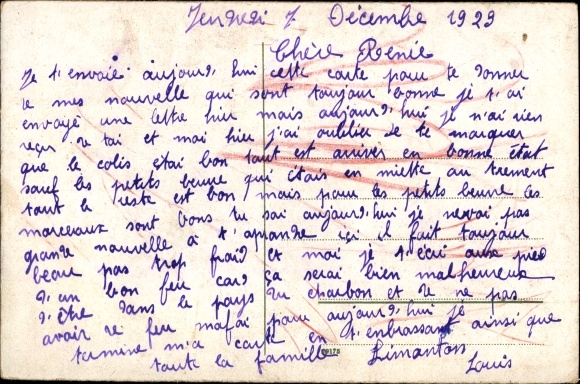 Vendredi 7 Décembre 1923
Chère Renie
Je t'envoie aujourd'hui cette carte pour te donner
de mes nouvelle qui sont toujour bonne je t'ai
envoyé une lettre hier mais aujourd'hui je n'ai rien
reçu de tai et mai hier j'ai oublier de te marquer
que le colis étai bon tout est arriver en bonne état
sauf les petits beurre qui étais en miette au trement
tout le reste est bon mais pour les petits beurre les
morceaux sont bons tu sai aujourd'hui je nervai pas
grande nouvelle à t'aprandre içi il fait toujour
beau pas trop fraid et mai je t'écri aux pied
d'un bon feu car ça serai bien malheureux
d'être dans le pays du charbon et de ne pas
avoir de feu mafai pour aujourd'hui je
termine m'a carte en t'enbrassant ainsi que
toute la famille Limantour
Louis